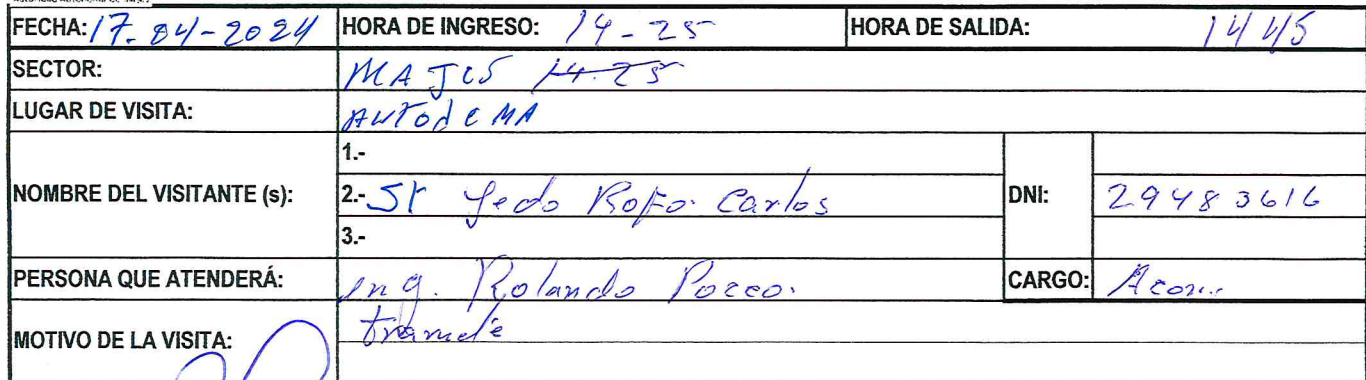 FECHA: 17-04-2024 HORA DE INGRESO: 14-25 HORA DE SALIDA: 1445
SECTOR: MAJES 14-25
LUGAR DE VISITA: AUTodeMA
1.-
NOMBRE DEL VISITANTE (s): 2.- Sr Carlos DNI: 29483616
3.-
PERSONA QUE ATENDERÁ: Ing. Rolando CARGO:
MOTIVO DE LA VISITA: